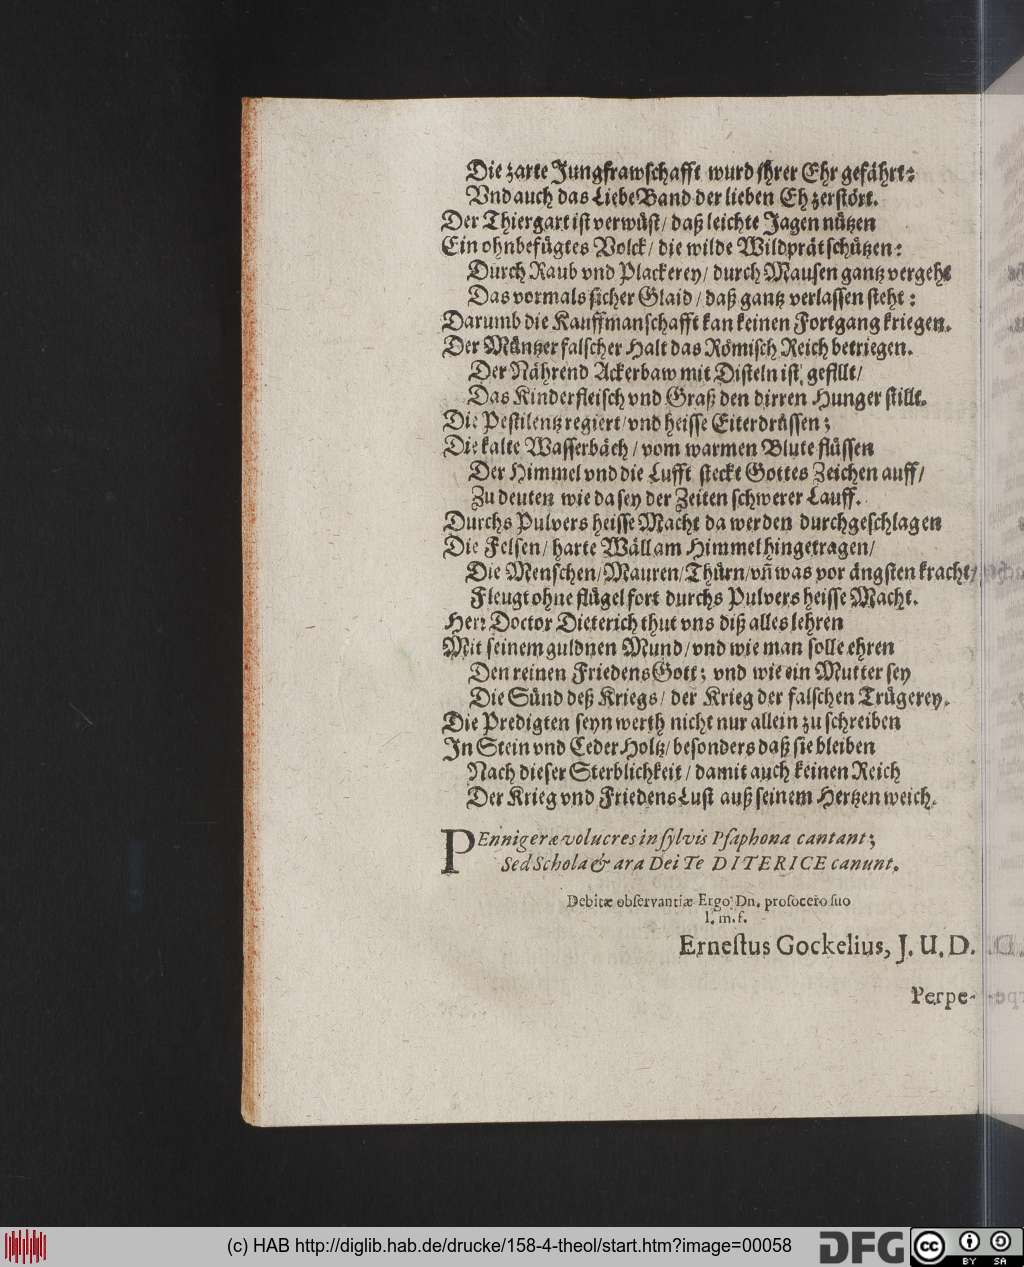 Die zarte Jungfrawschafft wurd jhrer Ehr gefährt:
Vnd auch das Liebe Band der lieben Eh zerstört.
Der Thiergart ist verwüst / daß leichte Jagen nützen
Ein ohnbefügtes Volck / die wilde Wildprätschützen:
Durch Raub vnd Plackerey / durch Mausen gantz vergeht
Das vormals sicher Glaid / daß gantz verlassen steht:
Darumb die Kauffmanschafft kan keinen Fortgang kriegen.
Der Müntzer falscher Halt das Römisch Reich betriegen.
Der Nährend Ackerbaw mit Disteln ist gefillt /
Das Kinderfleisch vnd Graß den dirren Hunger stillt.
Die Pestilentz regiert / vnd heisse Eiterdrüssen;
Die kalte Wasserbäch / vom warmen Blute flüssen
Der Himmel vnd die Lufft steckt Gottes Zeichen auff /
Zu deuten wie da sey der Zeiten schwerer Lauff.
Durchs Pulvers heisse Macht da werden durchgeschlagen
Die Felsen / harte Wäll am Himmel hingetragen /
Die Menschen / Mauren / Thürn / vñ was vor ängsten kracht /
Fleugt ohne flügel fort durchs Pulvers heisse Macht.
Herr Doctor Dieterich thut vns diß alles lehren
Mit seinem guldnen Mund / vnd wie man solle ehren
Den reinen FriedensGott; vnd wie ein Mutter sey
Die Sünd deß Kriegs / der Krieg der falschen Trügerey.
Die Predigten seyn werth nicht nur allein zu schreiben
In Stein vnd Ceder Holtz / besonders daß sie bleiben
Nach dieser Sterblichkeit / damit auch keinen Reich
Der Krieg vnd FriedensLust auß seinem Hertzen weich.
PEnnigeræ volucres in sylvis Psaphona cantant;
Sed Schola & ara Dei Te DITERICE canunt.
Debitæ observantiæ Ergò Dn. prosocero suo
l. m. f.
Ernestus Gockelius, J. U. D.
Perpe-
(c) HAB http://diglib.hab.de/drucke/158-4-theol/start.htm?image=00058
DFG
cc BY SA